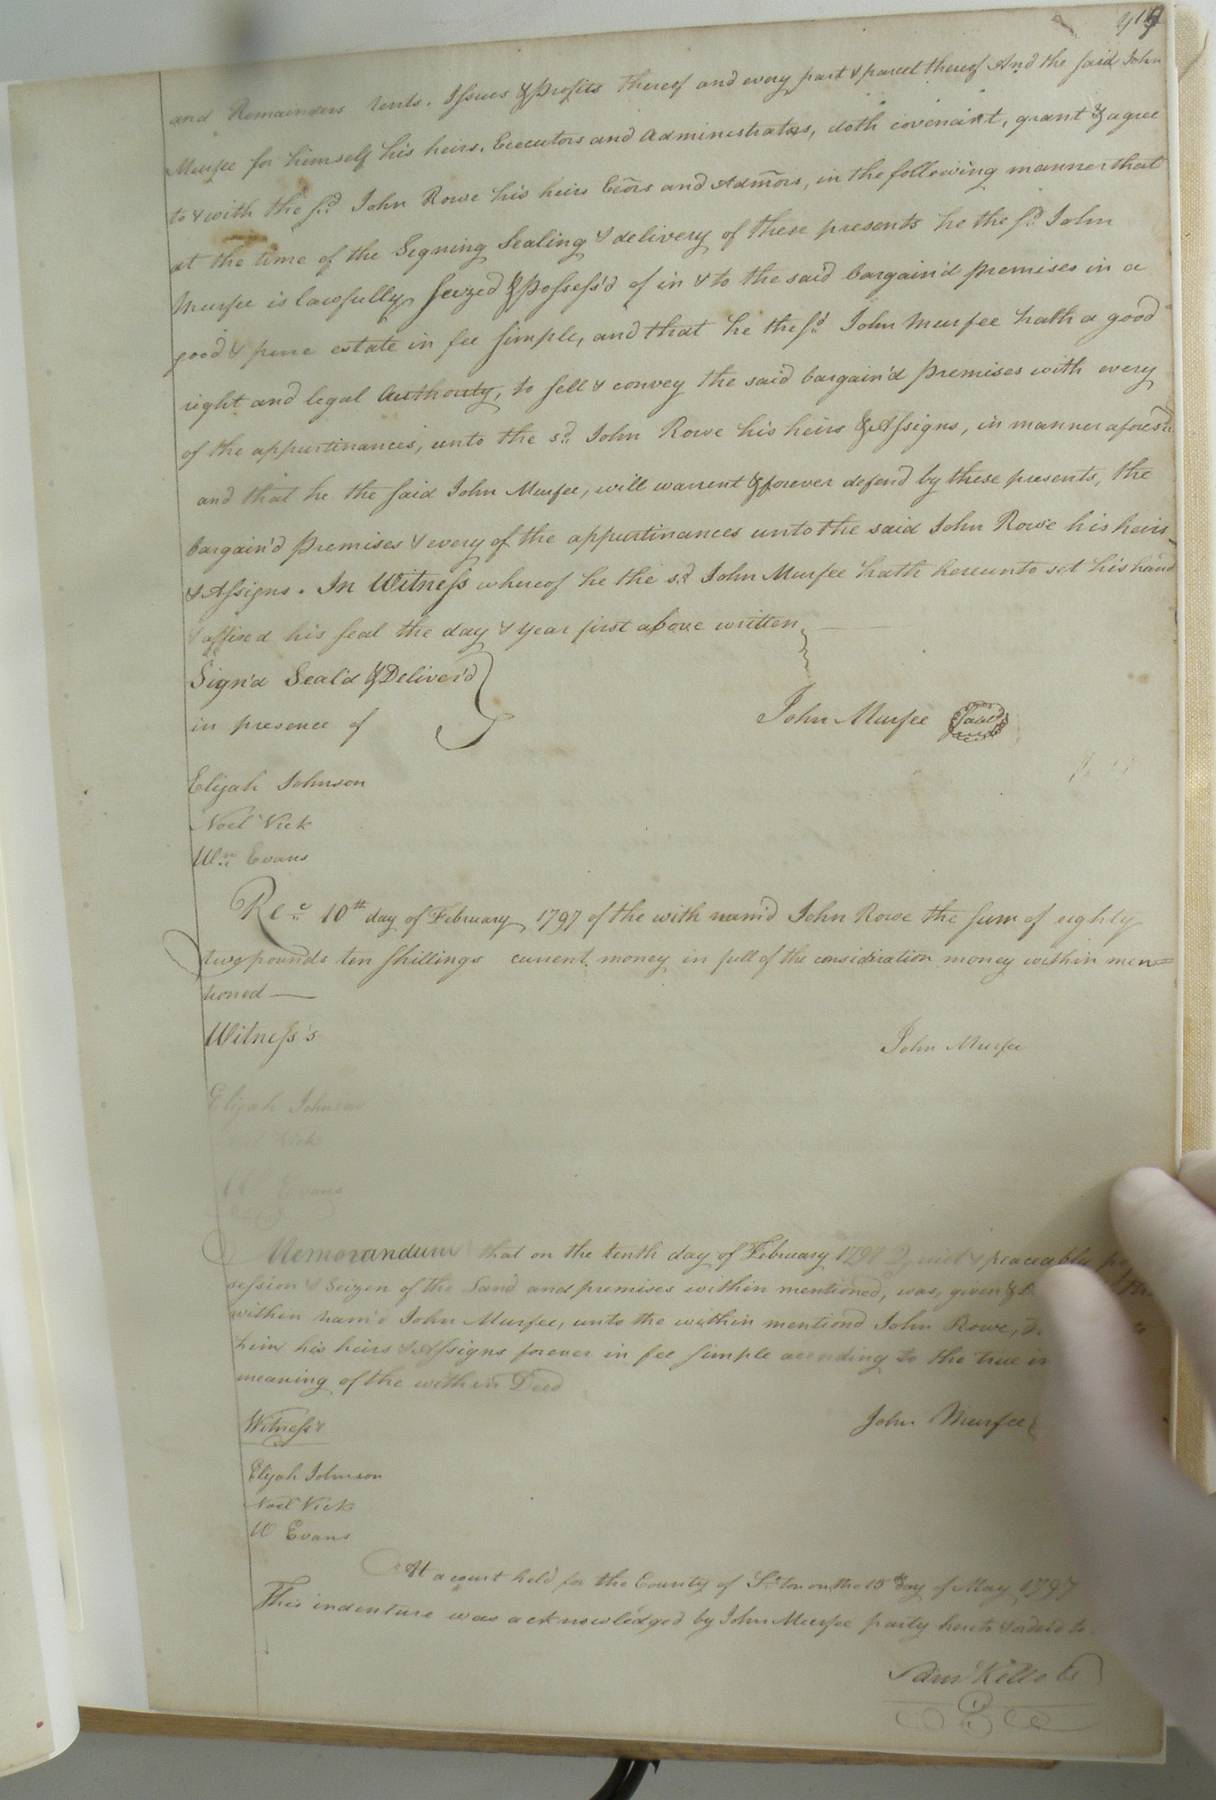 and Remainders rents, Issues & Profits thereof and every part & parcel thereof And the said John
Murfee for himself his heirs, Executors and Administrators, doth covenant, grant & agree
to & with the sd. John Rowe his heirs Exors and Admors, in the following manner that
at the time of the Signing Sealing & delivery of these presents he the sd. John
Murfee is lawfully Seized & Possess'd of in & to the said bargain'd premises in a
good & pure estate in fee simple, and that he the sd. John Murfee hath a good
right and legal Authority, to sell & convey the said bargain'd premises with every
of the appurtinances, unto the sd. John Rowe his heirs & Assigns, in manner aforesd.
and that he the said John Murfee, will warrent & forever defend by these presents, the
bargain'd premises & every of the appurtinances unto the said John Rowe his heirs
& Assigns. In Witness whereof he the sd. John Murfee hath hereunto set his hand
& affixed his seal the day & year first above written
Sign'd Seal'd & Deliver'd
in presence of
John Murfee
Elijah Johnson
Noel Vick
Wm. Evans
Recd. 10th day of February 1797 of the with nam'd John Rowe the sum of eighty
two pounds ten shillings current money in full of the consideration money within men=
tioned
Witness's
John Murfee
Elijah Johnson
Noel Vick
W Evans
Memorandum that on the tenth day of February 1797 Quiet & peaceable
session & Seizen of the Land and premises within mentioned, was, given &
within nam'd John Murfee, unto the within mentiond John Rowe,
him his heirs & Assigns forever in fee simple according to the true
meaning of the within Deed
Witness's
John Murfee
Elijah Johnson
Noel Vick
W Evans
At a court held for the County of So.ton on the 15th day of May 1797
This indenture was acknowledged by John Murfee party hereto & orderd to
Saml Kello